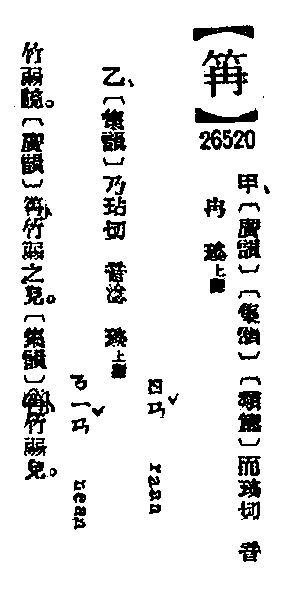 【䇋】
26520
甲、〔廣韻〕〔集韻〕〔類篇〕而琰切 音
冉 琰上聲
ㄖㄢˇ rann
乙、〔集韻〕乃玷切 音淰 琰上聲
ㄋㄧㄢˇ nean
竹弱貌。〔廣韻〕䇋、竹弱之皃。〔集韻〕䇋、竹弱皃。